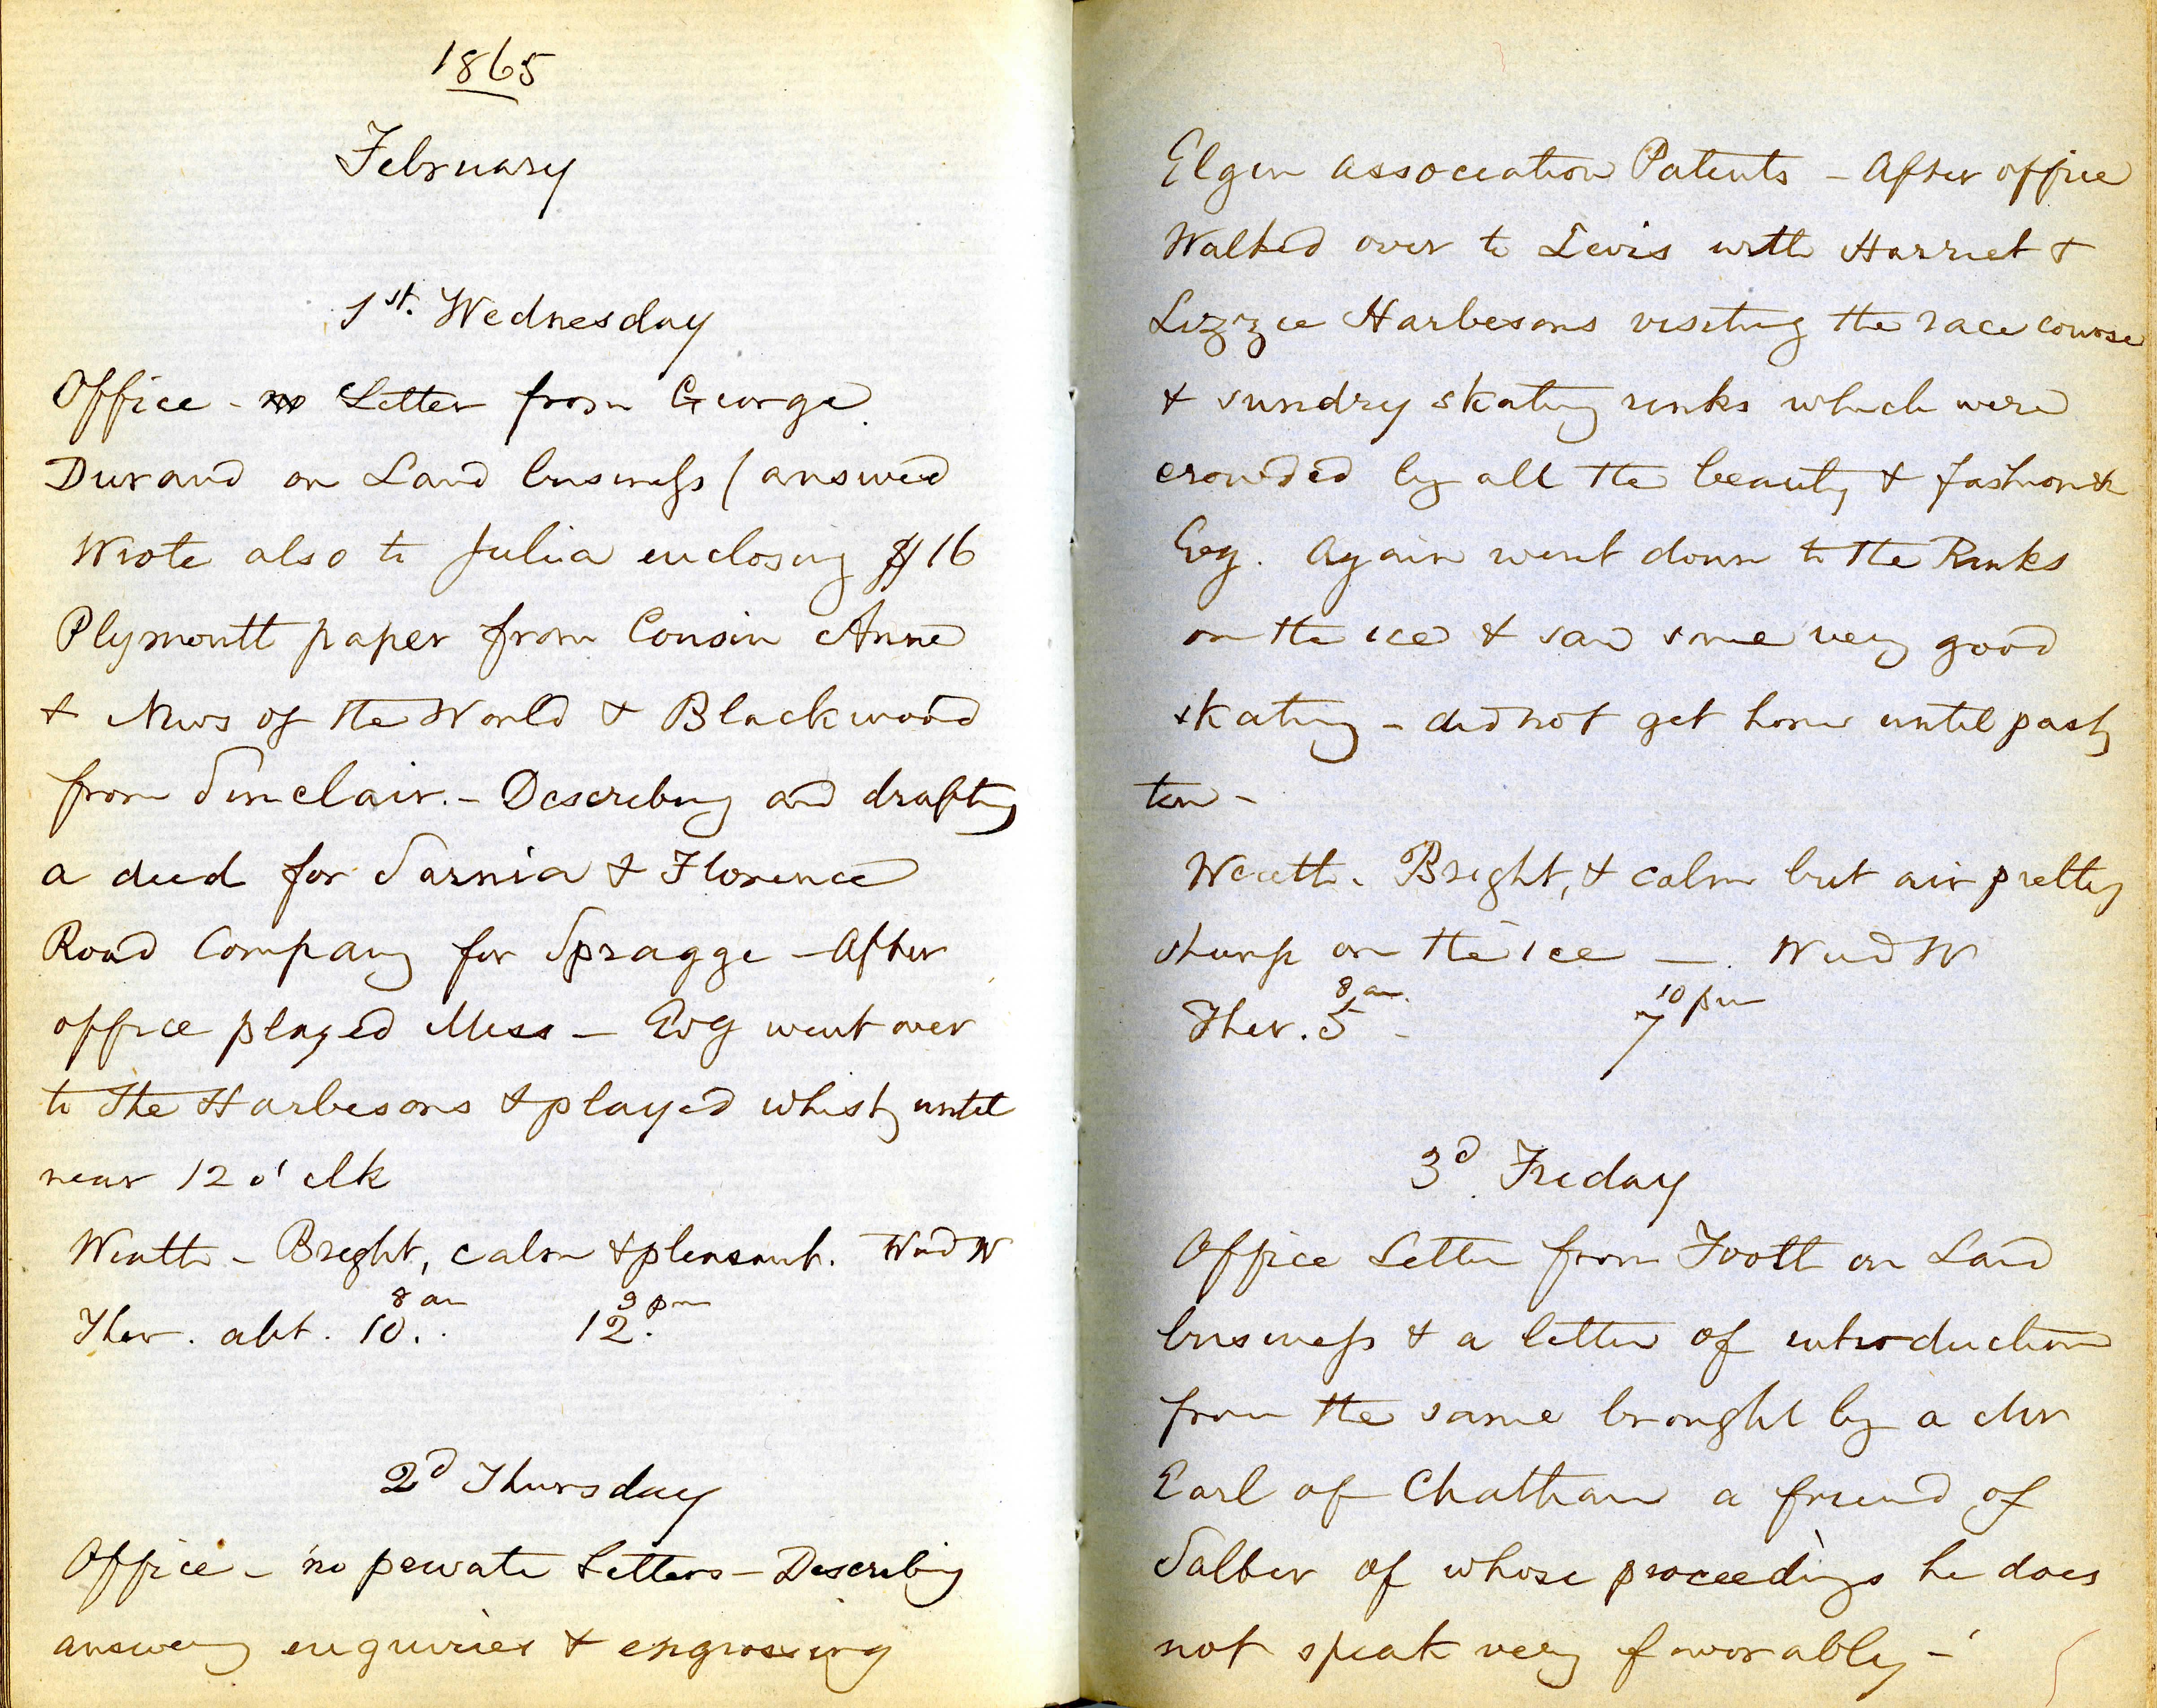 1865
February
1st. Wednesday
Office - Letter from George
Durand on Land business (answered
Wrote also to Julia enclosing $16
Plymouth paper from Cousin Anne
& News of the World & Blackwood
from Sinclair. - Describing and drafting
a deed for Sarnia & Florence
Road Company for Spragge - After
office played Mess - Evg went over
to the Harbesons & played whist until
near 12 o'clk
Weath - Bright, calm & pleasant. Wind W
8 am 9 pm
Ther. abt. 10. 12.
2d Thursday
Office - no private Letters - Describing
answering enquiries & engrossing
Elgin association Patents - After office
Walked over to Levis with Harriet &
Lizzie Harbesons visiting the race course
& sundry skating rinks which were
crowded by all the beauty & fashion &c
Evg. Again went down to the Rinks
on the ice & saw some very good
skating - did not get home until past
ten -
Weath. Bright, & calm but air pretty
sharp on the ice - . Wind W
8 am. 10 pm
Ther. 5 - 7
3d Friday
Office Letter from Foott on Land
business & a letter of introduction
from the same brought by a Mr
Earl of Chatham a friend of
Salter of whose proceedings he does
not speak very favorably -